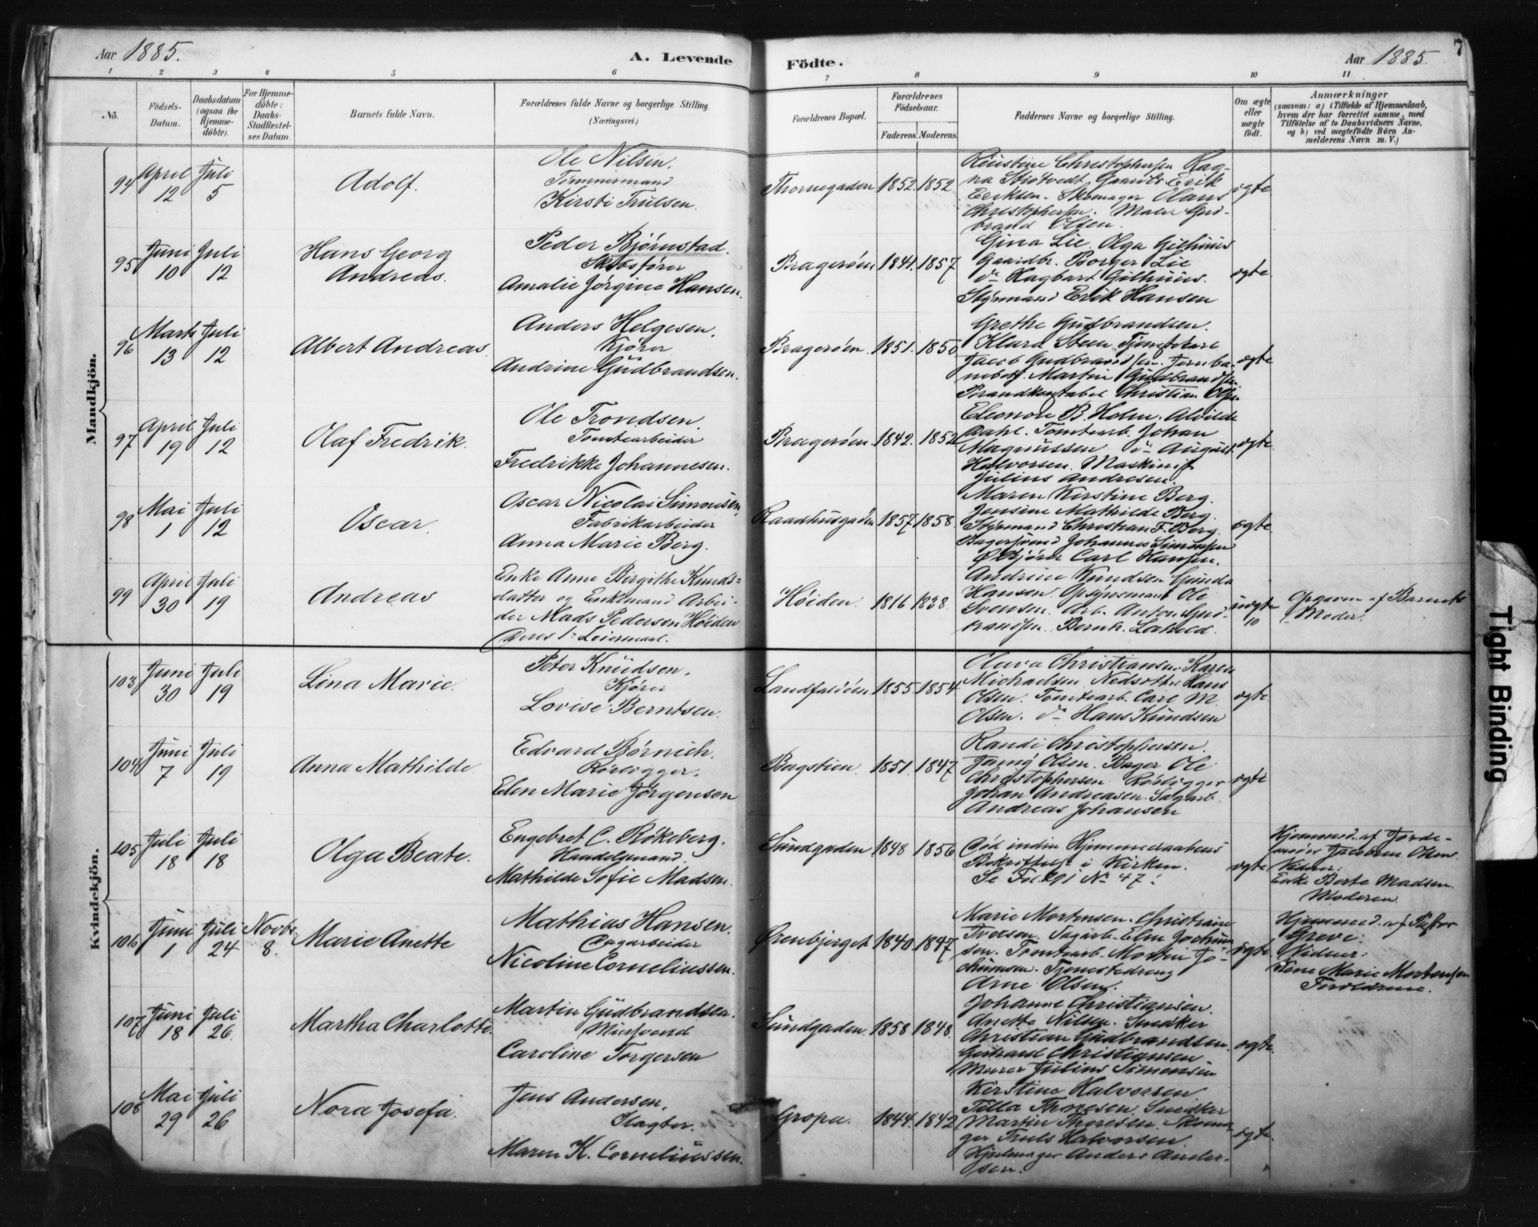 Aar 1885.
A. Levende Födte.
Aar 1885.
7
1 2 3 4 5 6 7 8 9 10 11
No.
Födsels-
Datum.
Daabsdatum
(ogsaa for
Hjemme-
døbte).
For Hjemme-
døbte:
Daabs-
Stadfæstel-
ses Datum.
Barnets fulde Navn.
Forældrenes fulde Navne og borgerlige Stilling.
(Næringsvei.)
Forældrenes Bopæl.
Forældrenes
Födselsaar.
Faderens. Moderens.
Faddernes Navne og borgerlige Stilling.
Om ægte
eller
uægte
født.
Anmærkninger
(saasom: a) i Tilfælde af Hjemmedaab,
hvem der har forrettet samme, med
Tilføielse af to Daabsvidners Navne,
og b) ved uegtefödte Börn An-
melderens Navn m. V.)
Mandkjön.
94
April
12
Juli
5
Adolf.
Ole Nilsen.
Tömmermand
Kirsti Trulsen.
Thornegaden
1852. 1852.
Christophersen
Erik
Eriksen. Skomager Olaus
Christophersen. Maler Gud-
brand Olsen.
ægte
95
Juni
10
Juli
12
Hans Georg
Andreas.
Peder Björnstad.
Skibsfører
Amalie Jörgine Hansen.
Bragerøen
1841. 1857
Gina Lie. Olga Gilhuus
Gaardbr. Borger Lie
do Hagbart Gilhuus.
Styrmand Erik Hansen
ægte
96
Marts
13
Juli
12
Albert Andreas
Anders Helgesen.
Kjører
Andrine Gudbrandsen.
Bragerøen
1851.
Grethe Gudbrandsen.
Klara Steen
Jacob Gudbrandsen.
Martin Gudbrandsen
Brandkonstabel Christian
ægte
97
April
19
Juli
12
Olaf Fredrik.
Ole Trondsen.
Tomtearbeider
Fredrikke Johannesen.
Bragerøen
1842. 1852
Eleonore B. Holm. Alvilde
Dahl. Tomtearb. Johan
Magnussen do August
Halvorsen. Maskinist
Julius Andresen.
ægte
98
Mai
1
Juli
12
Oscar.
Oscar Nicolai Simonsen,
Fabrikarbeider
Anna Marie Berg.
Raadhusgaden
1857. 1858.
Maren Kirstine Berg.
Jensine Mathilde Berg.
Styrmand Christian F. Berg.
Bagersvend Johannes Simonsen
Carl Hansen.
ægte
99
April
30
Juli
19
Andreas
Enke Anne Bergithe Knuds-
datter og Enkemand Arbei-
der Mads Pedersen Høiden
deres 1ste Leiermaal.
Høiden
1816 1838
Andrine Knudsen
Hansen. Opsynsmand Ole
Svensen. Arb. Anton Gud-
brandsen. Bernh.
uægte
10
Opgaven af Barnets
Moder.
Kvindekjön.
103
Juni
30
Juli
19
Lina Marie.
Peter Knudsen.
Kjører
Lovise Berntsen.
Landfaldöen
1855. 1854
Olava Christiansen Karen
Michaelsen Hans
Olsen. Tomtearb. Carl M.
Olsen. do Hans Knudsen
ægte
104
Juni
7
Juli
19
Anna Mathilde
Edvard Børnich.
Rørligger.
Elen Marie Jørgensen
Bagstien.
1851. 1847
Randi Christophersen.
Olsen. Bager Ole
Christophersen Rørligger
Johan Andreasen. Sagarb.
Andreas Johansen
ægte
105
Juli
18
Juli
18
Olga Beate.
Engebret C. Rökeberg.
Handelsmand.
Mathilde Sofie Madsen.
Sundgaden
1848 1856
Død inden Hjemmedaabens
Bekræftelse i Kirken.
Se No 47.
ægte
Hjemmed. af Jorde-
moder Olsen
Vidner:
Enke Berte Madsen
Moderen.
106
Juni
1
Juli
24
Novbr.
8.
Marie Anette
Mathias Hansen.
Sagarbeider
Nicoline Corneliussen.
Ørenbjerget
1840. 1847
Marie Mortensen. Christiane
Iversen. Sagarb. Elen Jochum-
sen. Tomtearb. Morten Jo-
chumsen. Tjenestedreng
Arne Olsen.
ægte
Hjemmed. af
Greve.
Vidner:
Marie Mortensen
Forældrene.
107
Juni
18
Juli
26
Martha Charlotte
Martin Gudbrandsen.
Mursvend
Caroline Torgersen
Sundgaden
1858 1848.
Johanne Christiansen.
Anette Nilsen. Snedker
Christian Gudbrandsen.
Gerhard Christiansen
Murer Julius Simonsen
ægte
108
Mai
29
Juli
26
Nora Josefa.
Jens Andersen.
Slagter.
Maren K. Corneliussen.
Gropa.
1844. 1842
Kirstine Halvorsen
Tilla Thoresen. Snedker
Martin Thoresen. Skoma-
ger Truls Halvorsen.
Hjulmager Anders Ander-
sen.
ægte
Tight Binding